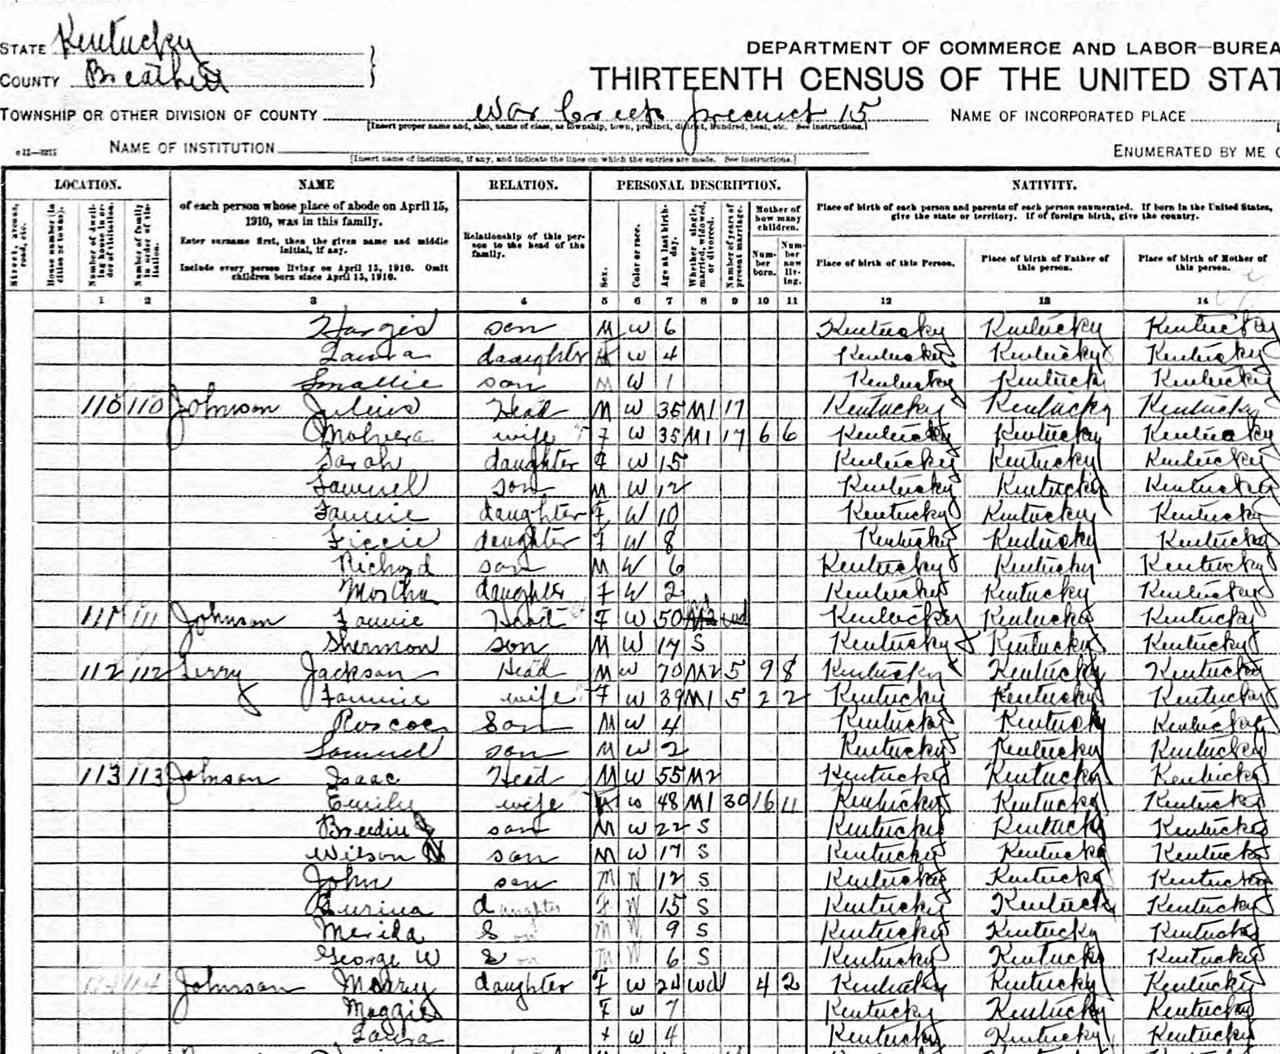 STATE Kentucky
COUNTY Breathitt
DEPARTMENT OF COMMERCE AND LABOR—BUREA
THIRTEENTH CENSUS OF THE UNITED STAT
TOWNSHIP OR OTHER DIVISION OF COUNTY War Creek precinct 15 NAME OF INCORPORATED PLACE
[Insert proper name and, also, name of class, as township, town, precinct, district, hundred, beat, etc. See instructions.]
NAME OF INSTITUTION ENUMERATED BY ME O
[Insert name of institution, if any, and indicate the lines on which the entries are made. See instructions.]
LOCATION. NAME RELATION. PERSONAL DESCRIPTION. NATIVITY.
Street, avenue, road, etc.
House number (in cities or towns).
Number of dwelling house in order of visitation.
Number of family in order of visitation.
of each person whose place of abode on April 15, 1910, was in this family.
Enter surname first, then the given name and middle initial, if any.
Include every person living on April 15, 1910. Omit children born since April 15, 1910.
Relationship of this person to the head of the family.
Sex.
Color or race.
Age at last birthday.
Whether single, married, widowed, or divorced.
Number of years of present marriage.
Mother of how many children.
Number born.
Number now living.
Place of birth of each person and parents of each person enumerated. If born in the United States, give the state or territory. If of foreign birth, give the country.
Place of birth of this Person.
Place of birth of Father of this person.
Place of birth of Mother of this person.
1 2 3 4 5 6 7 8 9 10 11 12 13 14
Hargis son M W 6 Kentucky Kentucky Kentucky
Laura daughter W 4 Kentucky Kentucky Kentucky
Smallie son M W 1 Kentucky Kentucky Kentucky
110 110 Johnson Julius Head M W 35 M1 17 Kentucky Kentucky Kentucky
wife F W 35 M1 17 6 6 Kentucky Kentucky Kentucky
Sarah daughter F W 15 Kentucky Kentucky Kentucky
Samuel son M W 12 Kentucky Kentucky Kentucky
Fannie daughter F W 10 Kentucky Kentucky Kentucky
daughter F W 8 Kentucky Kentucky Kentucky
Richard son M W 6 Kentucky Kentucky Kentucky
Martha daughter F W 2 Kentucky Kentucky Kentucky
111 111 Johnson Fannie Head F W 50 wd Kentucky Kentucky Kentucky
Shermon son M W 17 S Kentucky Kentucky Kentucky
112 112 Terry Jackson Head M W 70 M2 5 9 8 Kentucky Kentucky Kentucky
Fannie wife F W 39 M1 5 2 2 Kentucky Kentucky Kentucky
Roscoe Son M W 4 Kentucky Kentucky Kentucky
Samuel son M W 2 Kentucky Kentucky Kentucky
113 113 Johnson Isaac Head M W 55 M2 Kentucky Kentucky Kentucky
Emily wife W 48 M1 30 16 11 Kentucky Kentucky Kentucky
son M W 22 S Kentucky Kentucky Kentucky
Wilson son M W 17 S Kentucky Kentucky Kentucky
John son M W 12 S Kentucky Kentucky Kentucky
daughter F W 15 S Kentucky Kentucky Kentucky
Merida Son M W 9 S Kentucky Kentucky Kentucky
George W Son M W 6 S Kentucky Kentucky Kentucky
114 114 Johnson Mary daughter F W 24 wd 4 2 Kentucky Kentucky Kentucky
Maggie F W 7 Kentucky Kentucky Kentucky
Laura W 4 Kentucky Kentucky Kentucky